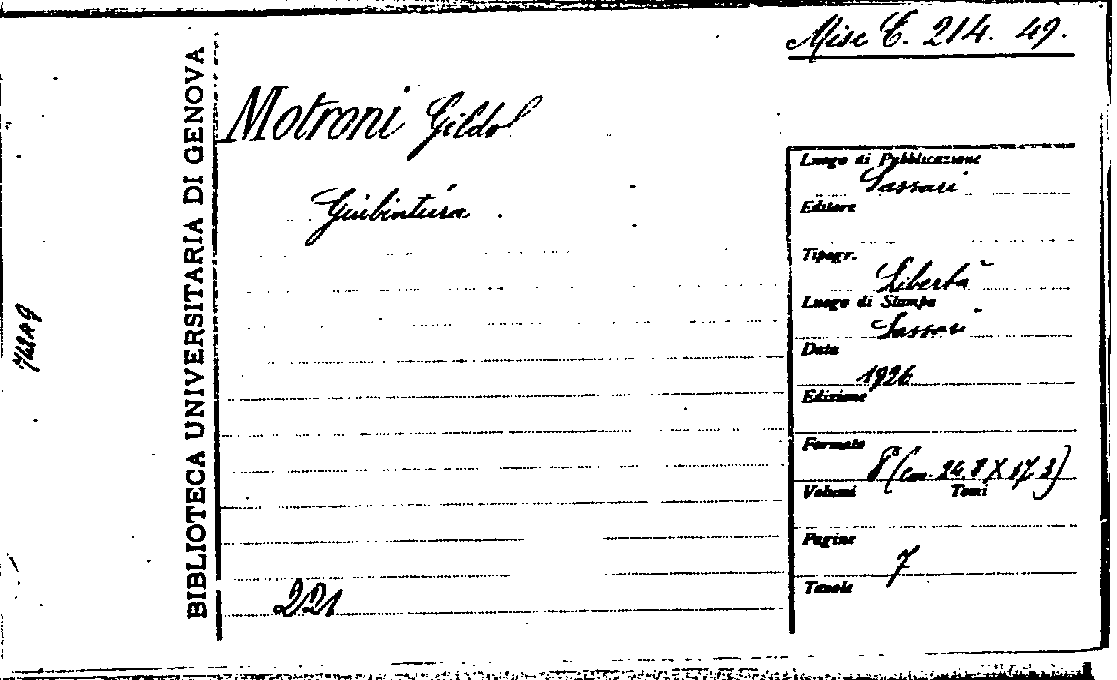 Misc C. 214. 49.
BIBLIOTECA UNIVERSITARIA DI GENOVA
Motroni Gildo
Giubintura
Luogo di Pubblicazione
Sassari
Editore
Tipogr.
Libertà
Luogo di Stampa
Sassari
Data
1926
Edizione
Formato
8° (cm. 24.8 X 17.3)
Volumi Tomi
Pagine
7
Tavole
221